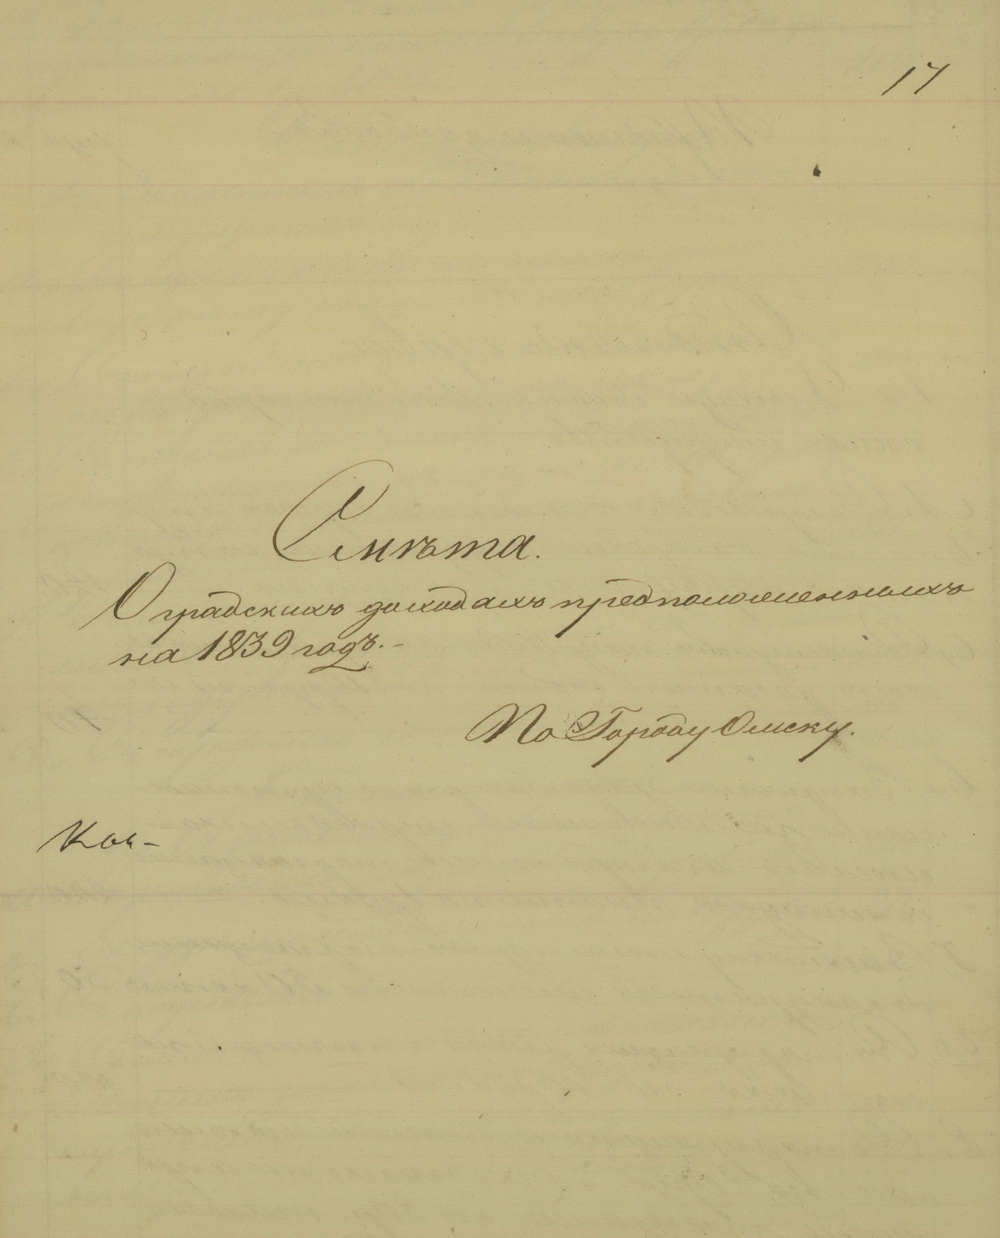 17
Смѣта.
О градскихъ доходахъ предположенныхъ
на 1839 годъ.-
По Городу Омску.